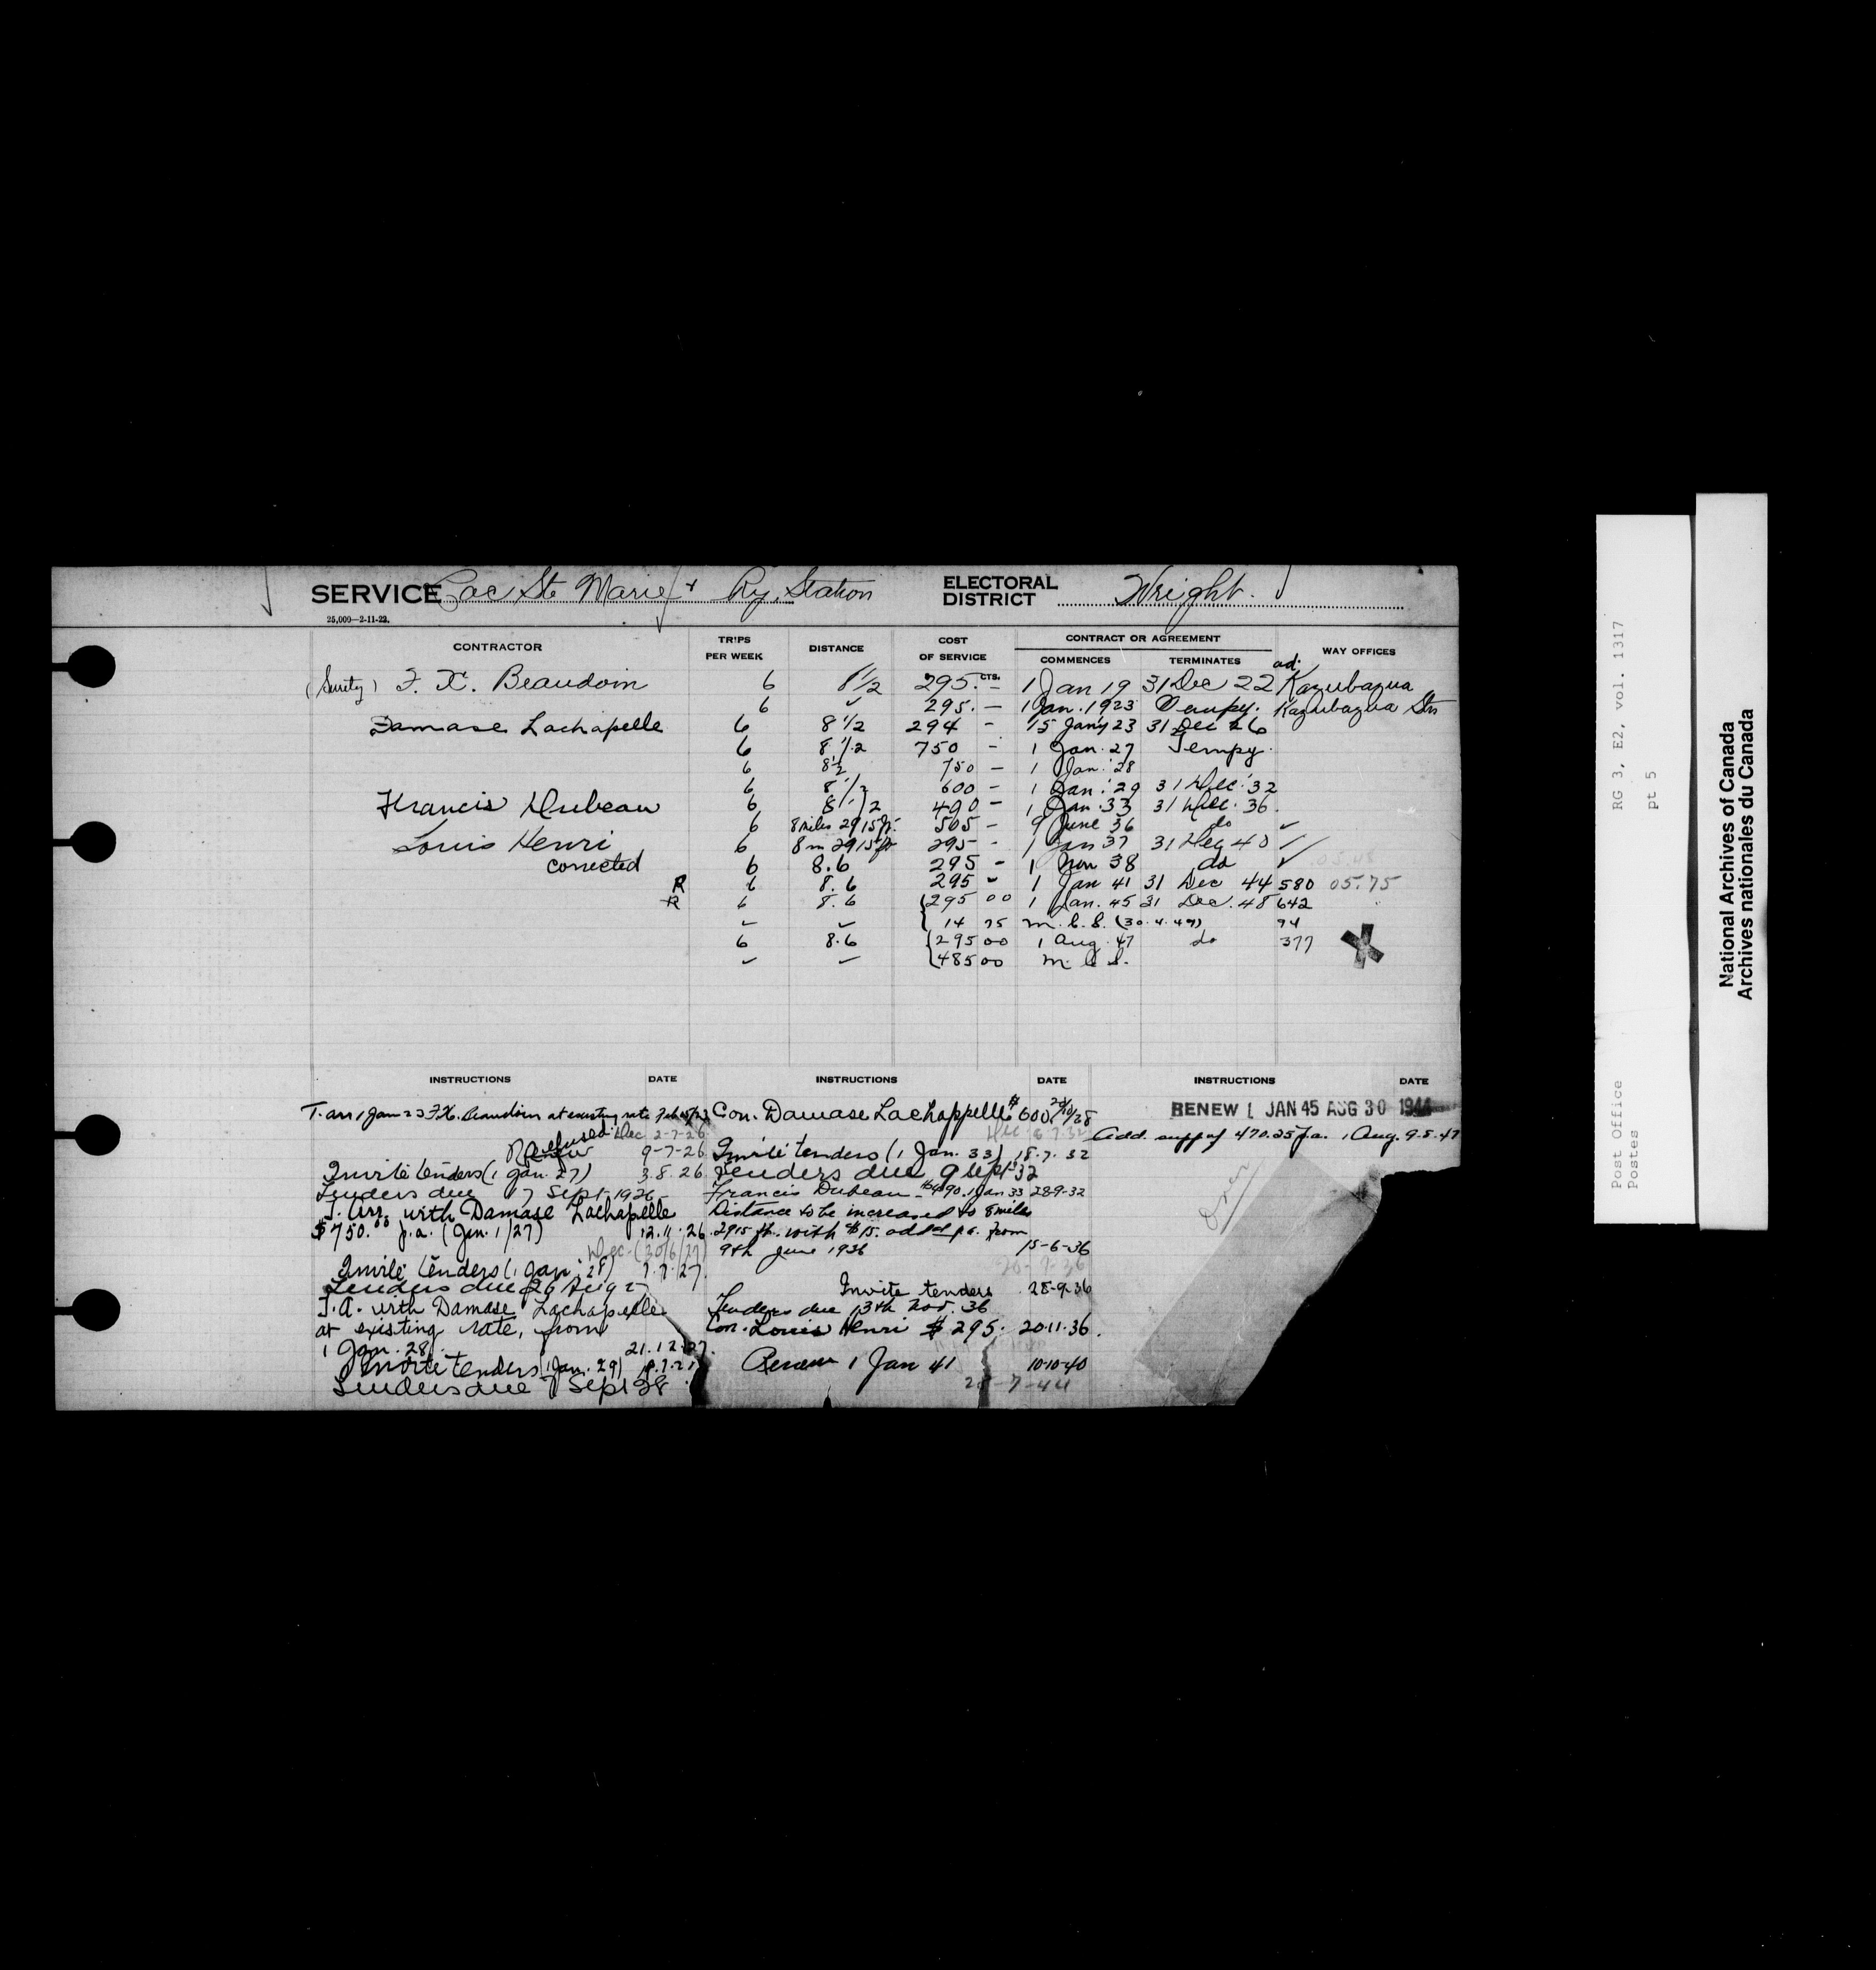 SERVICE Lac Ste Marie & Ry. Station ELECTORAL DISTRICT Wright.
25,000—2-11-22.
CONTRACTOR TRIPS PER WEEK DISTANCE COST OF SERVICE CONTRACT OR AGREEMENT COMMENCES TERMINATES WAY OFFICES
CTS. ad.
(Surety) F. X. Beaudoin 6 8 1/2 295. — 1 Jan 19 31 Dec 22 Kazubazua
6 ✓ 295. — 1 Jan. 1923 Tempy. Kazubazua Stn
Damase Lachapelle 6 8 1/2 294 - 15 Jany 23 31 Dec 26
6 8 1/2 750 - 1 Jan. 27 Tempy.
6 8 1/2 750 — 1 Jan. '28
6 8 1/2 600 - 1 Jan. '29 31 Dec. '32
Francis Dubeau 6 8 1/2 490 - 1 Jan. 33 31 Dec. 36.
6 8 miles 2915 ft. 505 - 9 June 36 do ✓
Louis Henri 6 8 m 2915 ft 295 - 1 Jan 37 31 Dec 40 ✓
corrected 6 8.6 295 - 1 Nov 38 do ✓ 05.48
R 6 8.6 295 - 1 Jan 41 31 Dec 44 580 05.75
R 6 8.6 295 00 1 Jan. 45 31 Dec. 48 642
✓ ✓ 14 75 m.c.s. (30.4.47) 94
6 8.6 295 00 1 Aug. 47 do 377 X
✓ ✓ 485 00 m.c.s.
INSTRUCTIONS DATE
T. arr 1 Jan 23 F.X. Beaudoin at existing rate Feb 15/23
Dec 2-7-26
Renew refused 9-7-26
Invite tenders (1 Jan. 27) 3.8.26
Tenders due 7 Sept-1926
T. Arr. with Damase Lachapelle
$750.00 p.a. (Jan. 1/27) 12.11.26
Dec (30/6/27)
Invite tenders (1 Jan. '28) 7.7.27.
Tenders due 26 Aug 27
T.A. with Damase Lachapelle
at existing rate, from
1 Jan. 28. 21.12.27.
Invite tenders (1 Jan. 29)
Tenders due 7 Sept 28
INSTRUCTIONS DATE
Con. Damase Lachappelle $600 24/10/28
Dec 6.7.32
Invite tenders (1 Jan. 33) 18.7.32
Tenders due 9 Sept 32
Francis Dubeau - $490. 1 Jan 33 28-9-32
Distance to be increased to 8 miles
2915 ft. with $15. add'l p.a. from
9th June 1936 15-6-36
20-7-36
Invite tenders 28-9-36
Tenders due 13th Nov. 36
Con. Louis Henri $295. 20.11.36.
Renew 1 Jan 41 10-10-40
28-7-44
INSTRUCTIONS DATE
RENEW 1 JAN 45 AUG 30 1944
Add. supp of 470.25 p.a. 1 Aug. 9.5.47
Over
RG 3, E2, vol. 1317
pt 5
Post Office
Postes
National Archives of Canada
Archives nationales du Canada